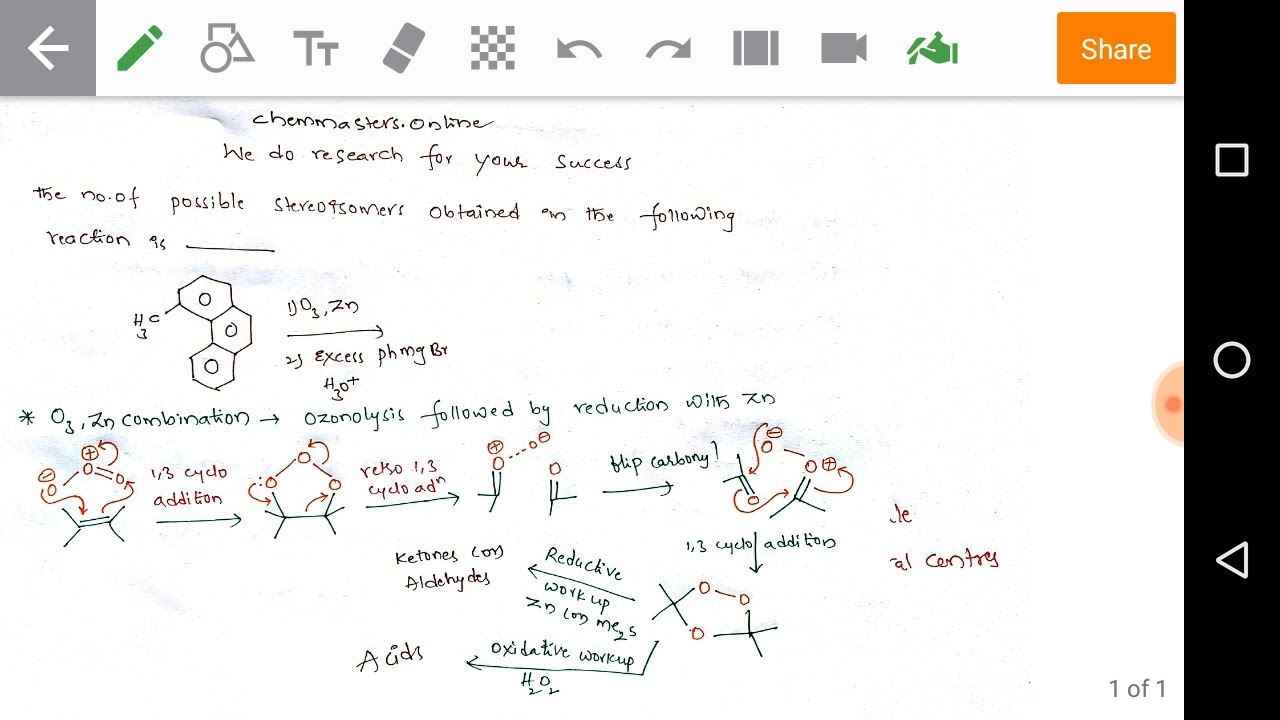 Share
chemmasters.online
We do research for your success
the no.of possible stereoisomers obtained in the following
reaction is ______
H3C
1) O3, Zn
2) Excess phmgBr
H3O+
* O3, Zn combination → ozonolysis followed by reduction with Zn
1,3 cyclo
addition
retro 1,3
cyclo adn
flip carbonyl
1,3 cyclo addition
le
al centres
Ketones (or)
Aldehydes
Reductive
work up
Zn (or) me2s
Acids
Oxidative workup
H2O2
1 of 1